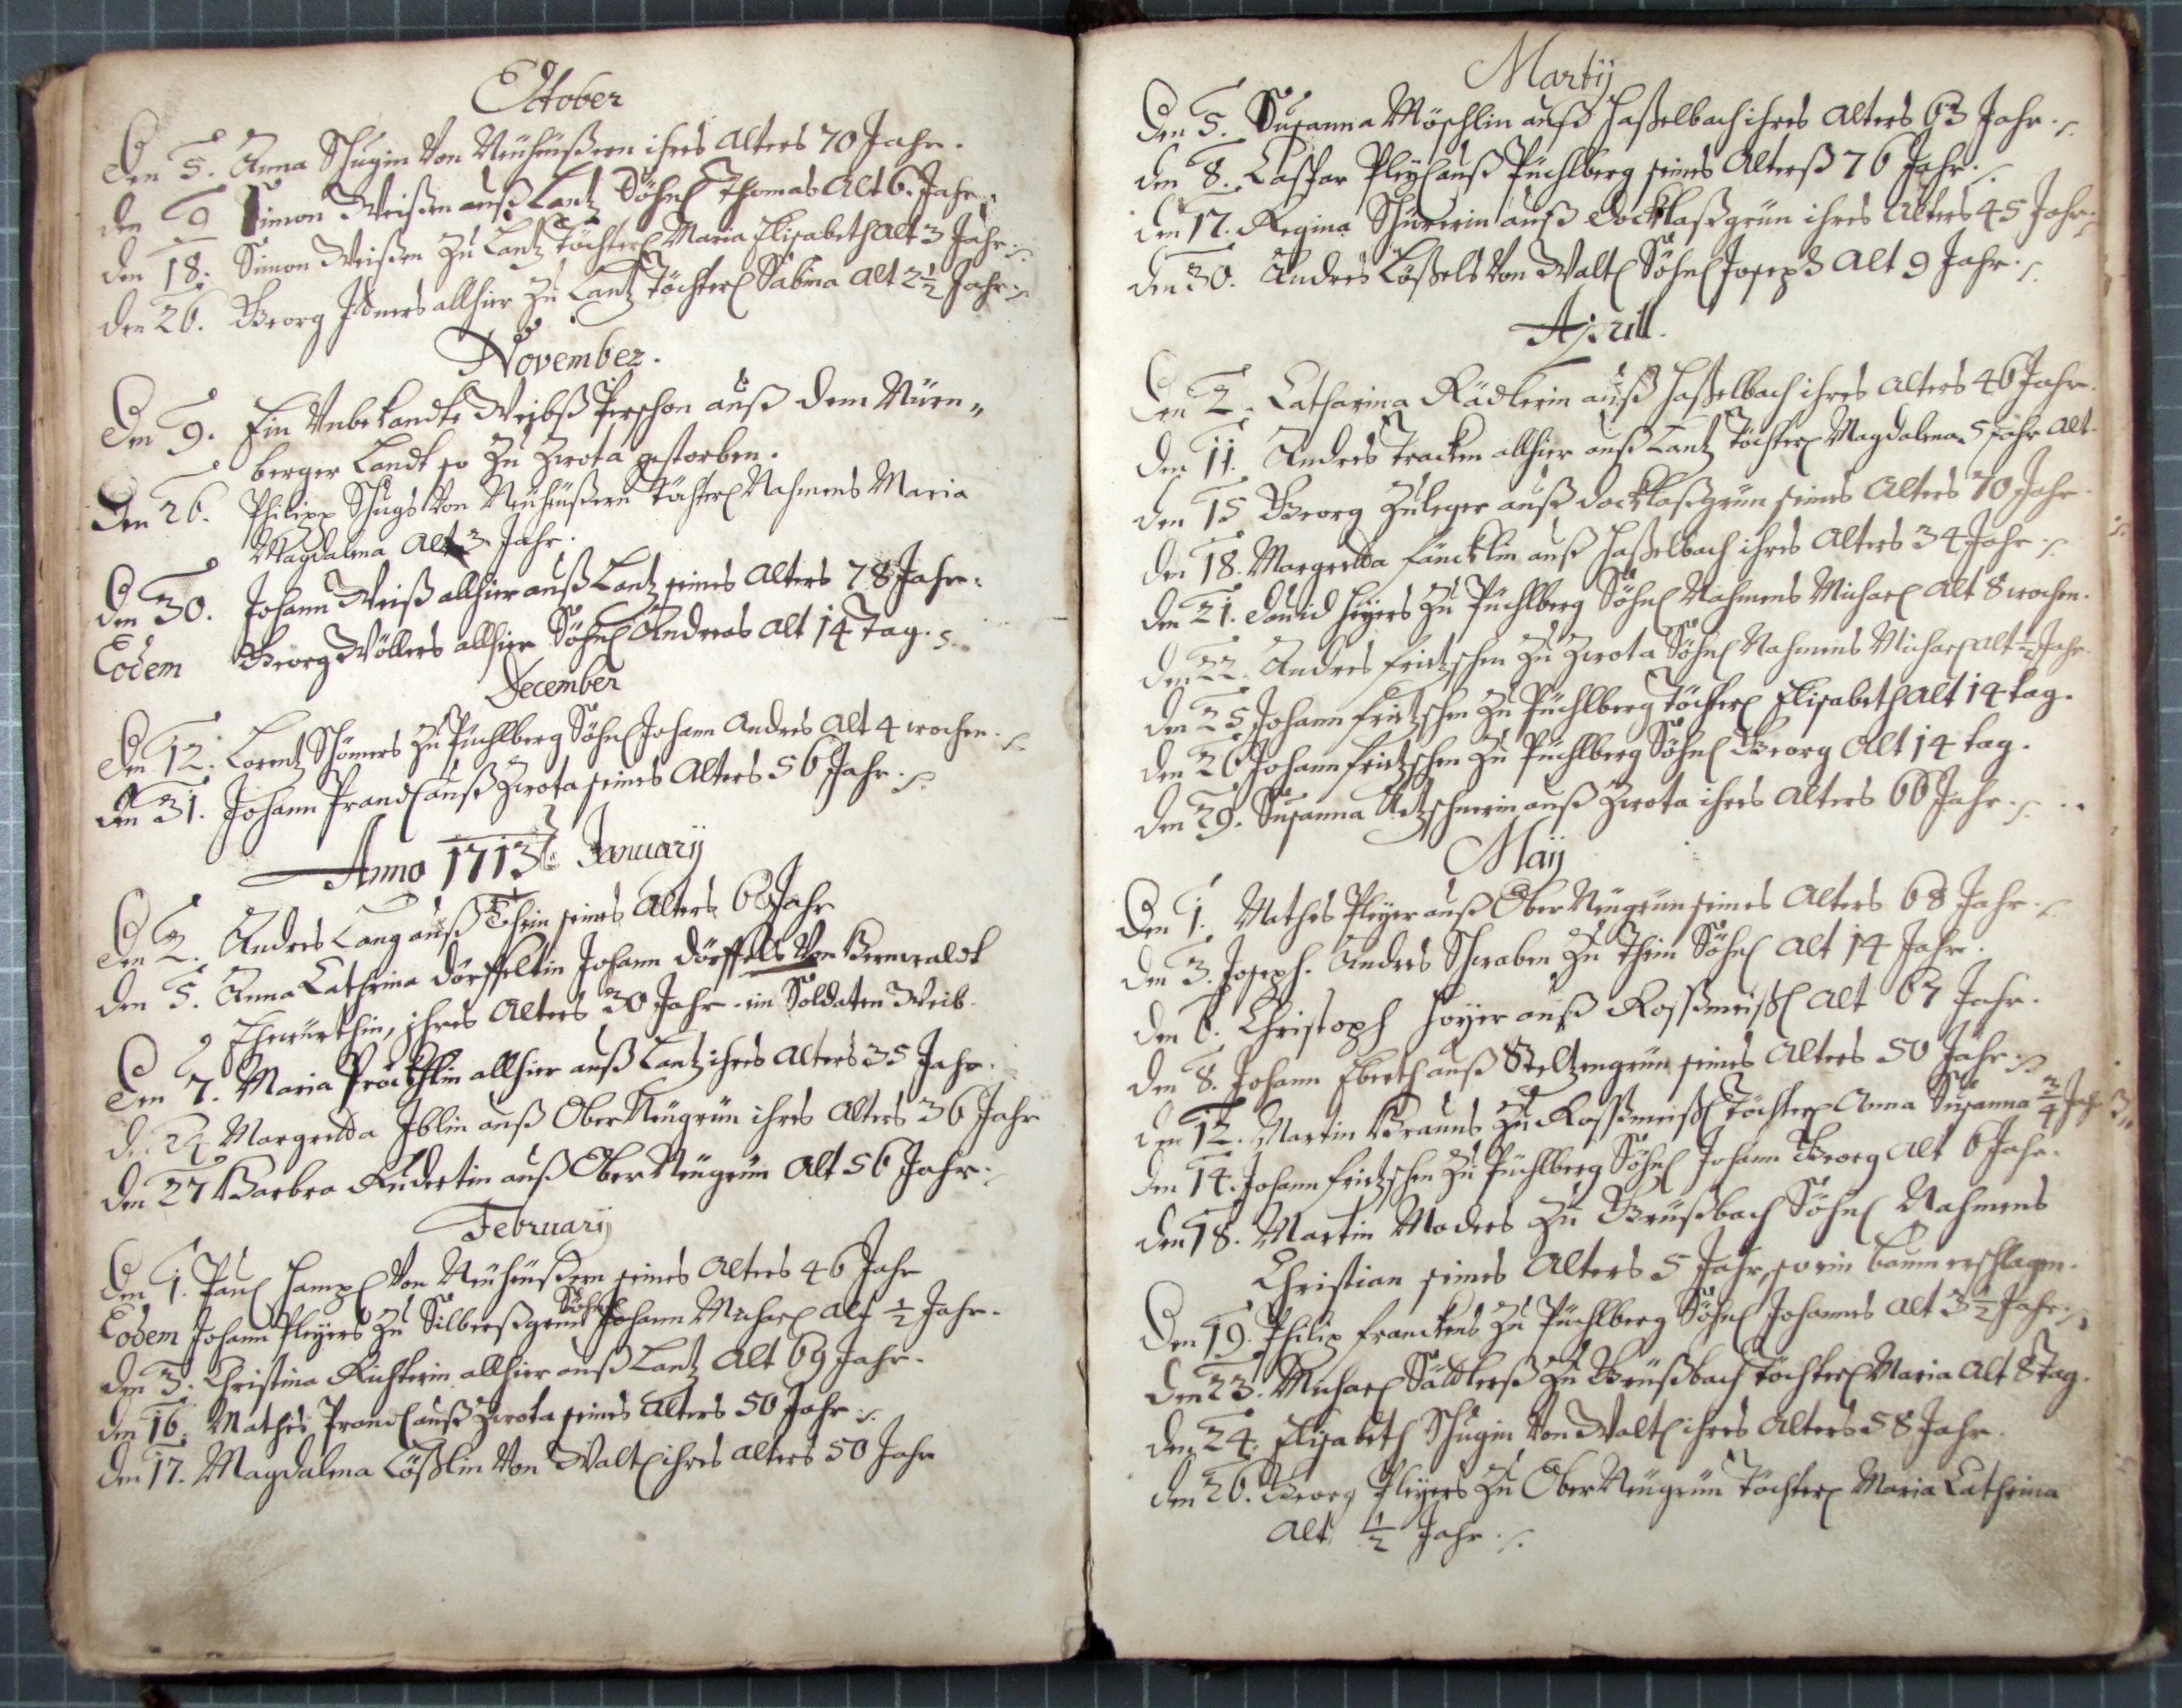 October
Den 5. Anna Schugin Von Neuheußern ihres Alters 70 Jahr.
den 9 Simon Weißen auß Lantz Söhnl Thomas Alt 6. Jahr.
den 18. Simon Weißen Zu Lantz Töchterl Maria Elisabeth alt 3 Jahr.
den 26. Georg allhier Zu Lantz Töchterl Sabina Alt 2½ Jahr.
November.
Den 9. Ein Unbekandte Weibß Perschon auß dem Nürn„
berger Landt so Zu Zwota gestorben.
Den 26. Philipp Schugs Von Neuheußern Töchterl Nahmens Maria
Magdalena Alt 3 Jahr.
Den 30. Johann Weiß allhier auß Lantz seines Alters 78 Jahr.
Eodem Georg Völlers allhier Söhnl Andreas alt 14 Tag.
December
Den 12. Lorentz Schömers Zu Püchlberg Söhnl Johann Andres Alt 4 wochen.
den 31. Johann Prandl auß Zwota seines Alters 56 Jahr.
Anno 1713 January
Den 2. Andres Lang auß Thein seines Alters 60 Jahr
den 5. Anna Cathrina Dörffeltin Johann Dörffels Von Bernwaldt
Ehewürthin, ihres Alters 30 Jahr. ein Soldaten Weib.
Den 7. Maria Pröckhlin allhier auß Lantz ihres Alters 35 Jahr.
d. 24 Margretha Iblin auß Ober Neugrün ihres Alters 36 Jahr
den 27 Barbra Rudertin auß Ober Neugrün Alt 56 Jahr.
February
Den 1. Paul Hampl Von Neuheußern seines Alters 46 Jahr
Eodem Johann Pleyers Zu Silberßgrün Söhnl Johann Michael alt ½ Jahr.
den 3. Christina Richterin allhier auß Lantz Alt 69 Jahr.
den 16. Mathes Prandl auß Zwota seines Alters 50 Jahr.
den 17. Magdalena Lößlin Von Waltl ihres Alters 50 Jahr
Martij
Den 5. Susanna Möschlin auß Haßelbach ihres Alters 63 Jahr.
den 8. Caspar Pleyl auß Püchlberg seines Alterß 76 Jahr.
den 17. Regina Schürerin auß Docklaßgrün ihres Alters 45 Jahr.
den 30. Andres Lößels Von Waltl Söhnl Joseph Alt 9 Jahr.
Aprill.
Den 2. Catharina Rädlerin auß Haßelbach ihres Alters 46 Jahr.
den 11. Andres Tracken allhier auß Lantz Töchterl Magdalena 5 Jahr alt.
den 15 Georg Zuleger auß Docklaßgrün seines Alters 70 Jahr.
den 18. Margretha Fäncklin auß Haßelbach ihres Alters 34 Jahr.
den 21. David Heyers Zu Püchlberg Söhnl Nahmens Michael Alt 8 wochen.
den 22. Andres Fritzschen Zu Zwota Söhnl Nahmens Michael alt ½ Jahr.
den 25 Johann Fritzschen Zu Püchlberg Töchterl Elisabeth Alt 14 tag.
den 26 Johann Fritzschen Zu Püchlberg Söhnl Georg Alt 14 tag.
den 29. Susanna auß Zwota ihres Alters 66 Jahr.
Maij
Den 1. Mathes Pleyer auß Ober Neugrün seines Alters 68 Jahr.
den 3. Joseph. Andres Schwaben Zu Thein Söhnl Alt 14 Jahr.
den 6. Christoph Hoyer auß Roßmeißl Alt 67 Jahr.
den 8. Johann Eberth auß Steltzengrün seines Alters 50 Jahr.
den 12. Martin Brauns Zu Roßmeißl Töchterl Anna Susanna ¾ Jahr
den 14. Johann Fritzschen Zu Püchlberg Söhnl Johann Georg alt 6 Jahr.
den 18. Martin Maders Zu Grüßbach Söhnl Nahmens
Christian seines Alters 5 Jahr, so ein baum erschlagen.
Den 19. Philip Franckens Zu Püchlberg Söhnl Johannes Alt 3½ Jahr.
den 23. Michael Sädlerß Zu Grüßbach Töchterl Maria Alt 8 tag.
den 24. Elisabeth Schugin Von Waltl ihres Alters 58 Jahr.
den 26. Georg Pleyers Zu Ober Neugrün Töchterl Maria Cathrina
Alt ½ Jahr.